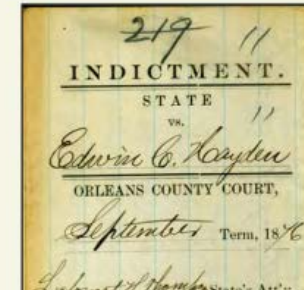 219 "
INDICTMENT.
STATE "
vs.
Edwin C. Hayden
ORLEANS COUNTY COURT,
September Term, 1876
State's Att'y